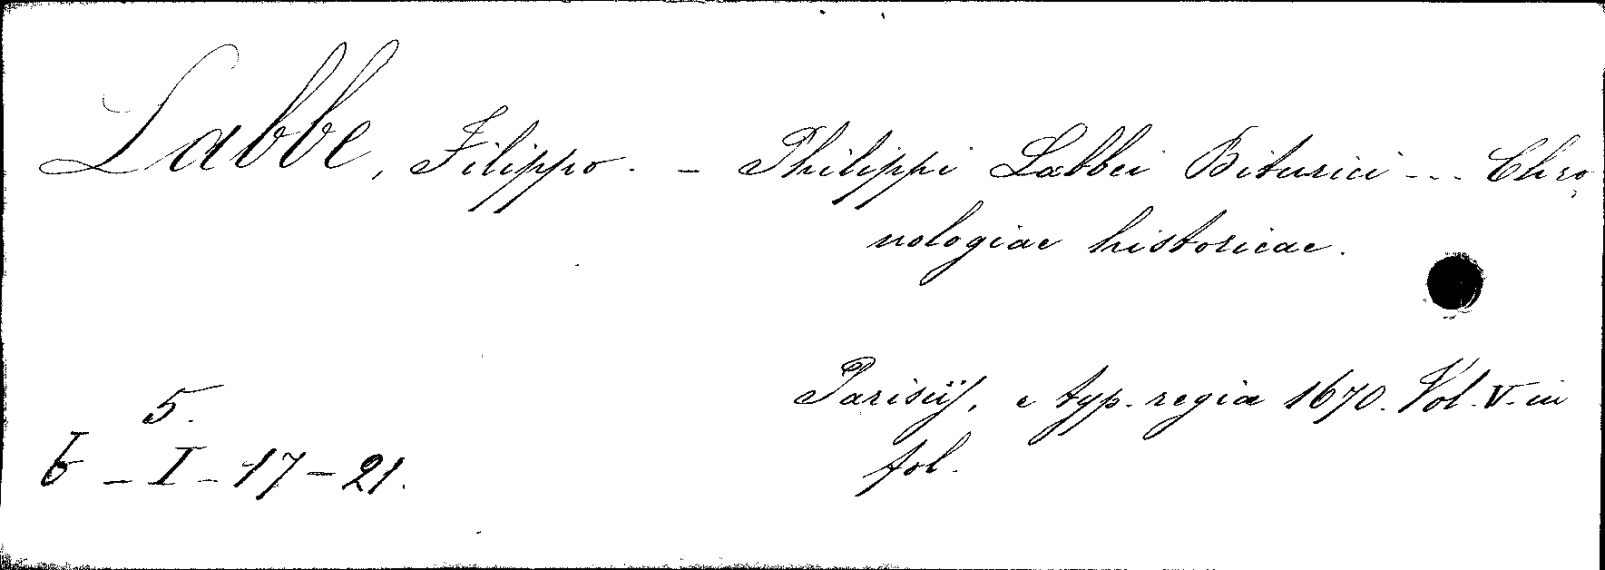 Labbe, Filippo. - Philippi Labbei Biturici --- Chro
nologiae historicae.
Parisiis, e typ. regia 1670. Vol. V. in
fol.
5.
b - I - 17 - 21.